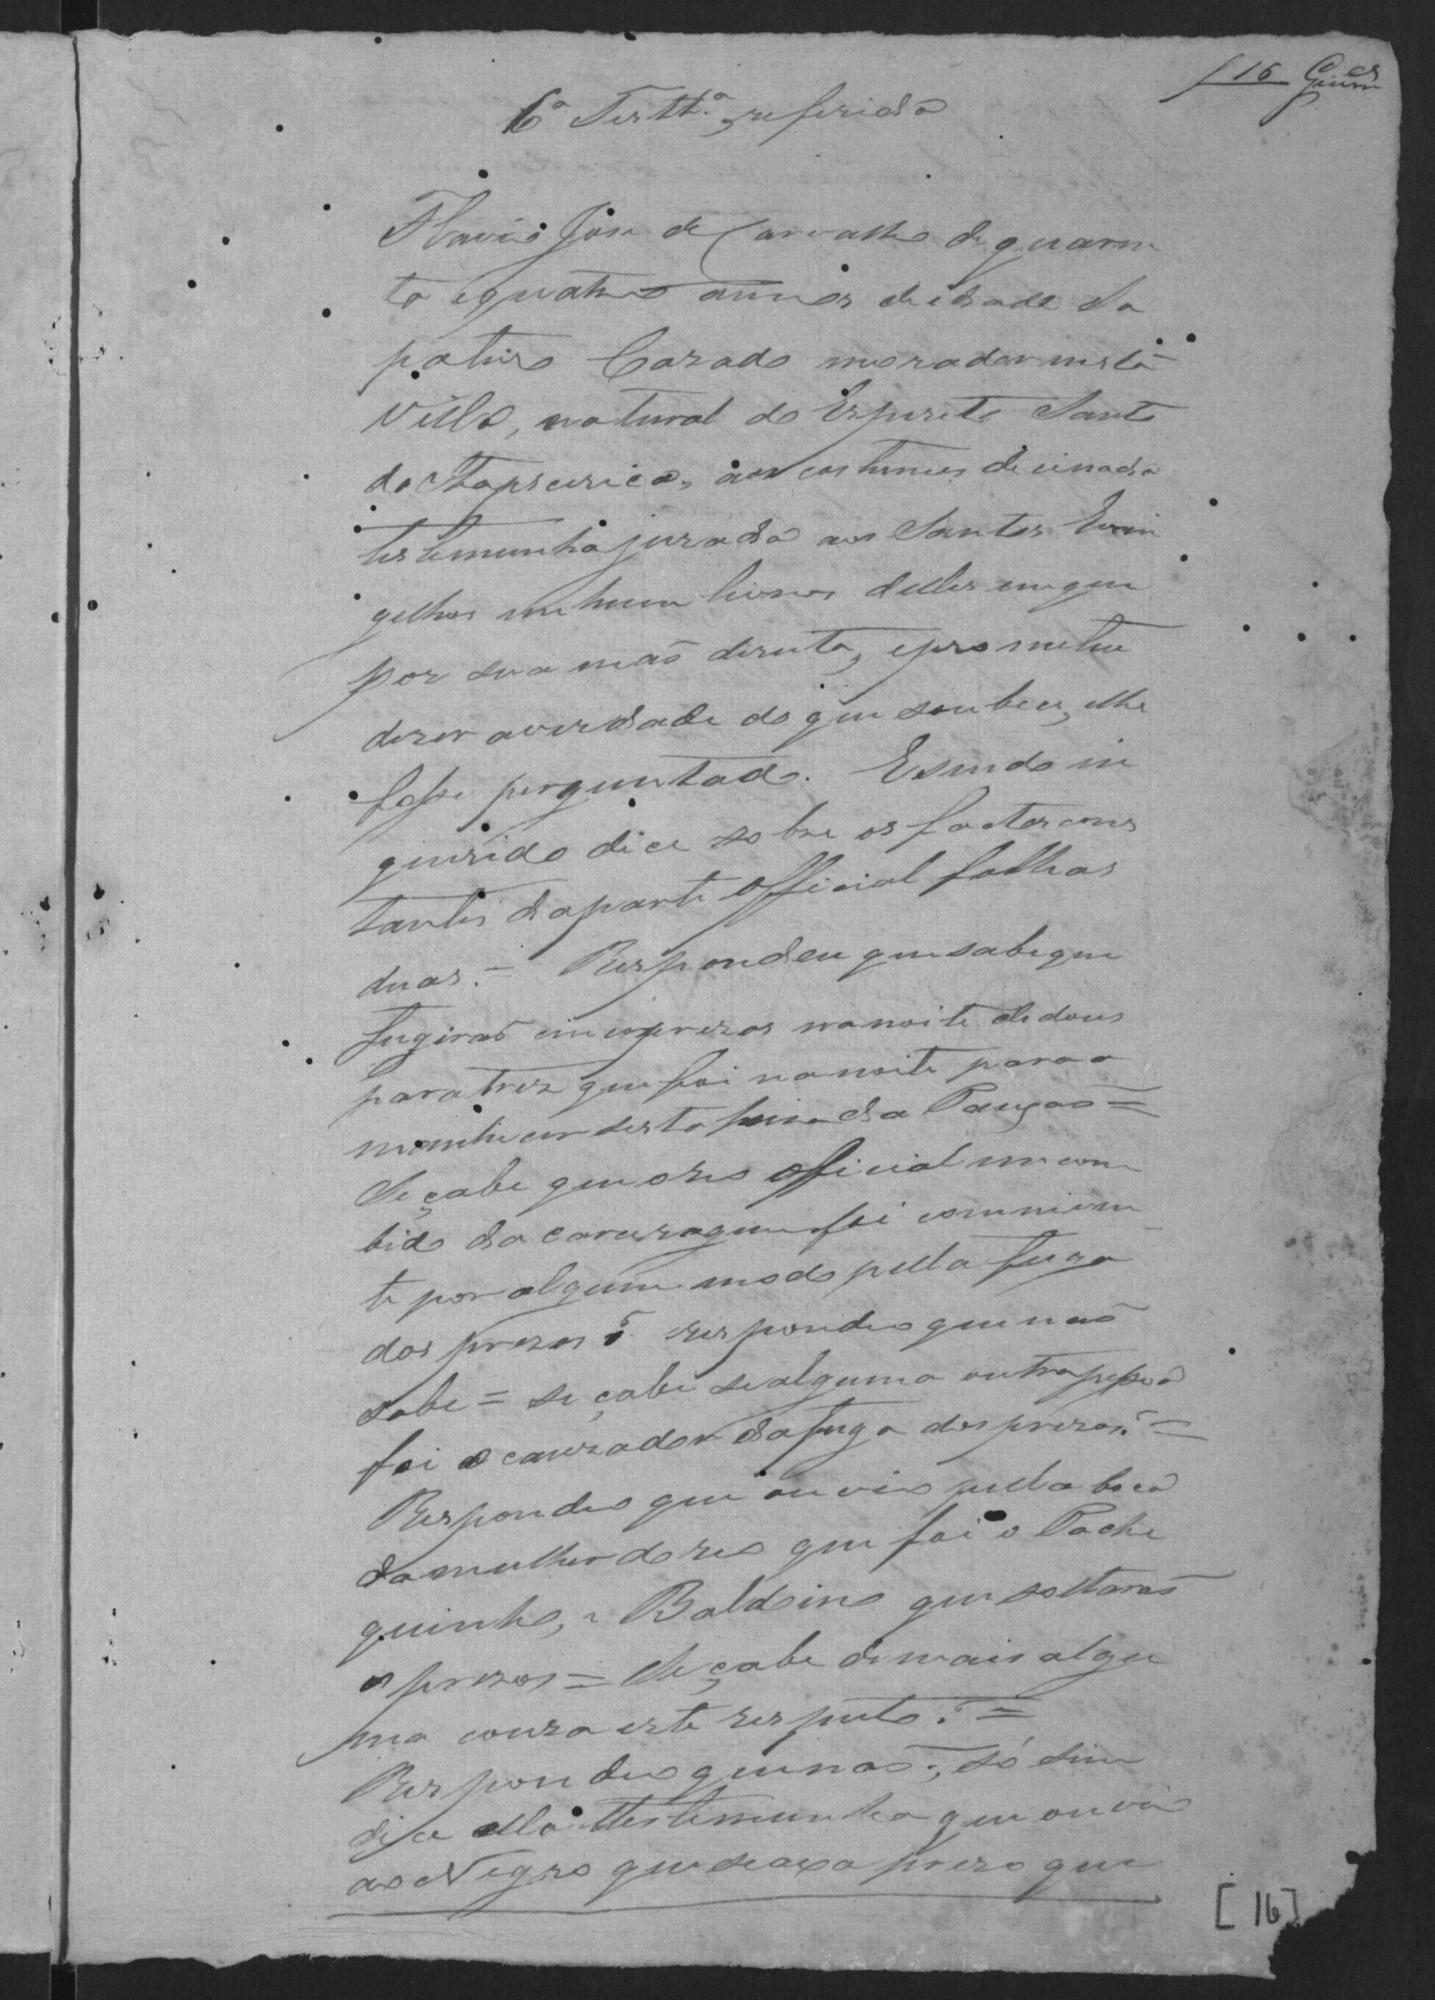 f 16
6ª Testtª referida
Flavio José de Carvalho de quaren
ta equatro annos de idade Sa
pateiro Cazado morador nesta
Villa, natural do Espirito Santo
da Itapecerica, aos costumes dice nada
testemunha jurada aos Santos Evan
gelhos em hum livro delles em que
por sua mão dereita, eprometeu
dezer averdade do que soubece, elhe
fosse perguntado. Esendo in
querido dice sobre os factos cons
tantes da parte Official folhas
duas. = Respondeu que sabe que
fugirão cinco prezos na noite de dous
para trez que foi na noite para a
manhecer sesta feira da Paixão =
Se çabe que o reo official encom
bido da
que foi coniven
te por algum modo pella fuga
dos prezos? respondeo que não
sabe = se çabe se alguma outra pessoa
foi o cauzador da fuga dos prezos? =
Respondeo que ouvio pella boca
da mulher do reo que foi o Pache
quinho, e Baldoino que soltarão
os prezos = Se çabe de mais algu
ma couza a este respeito? =
Respondeo que não; só sim
dice ella testemunha que ouvio
ao Negro que se axa prezo que
[16]